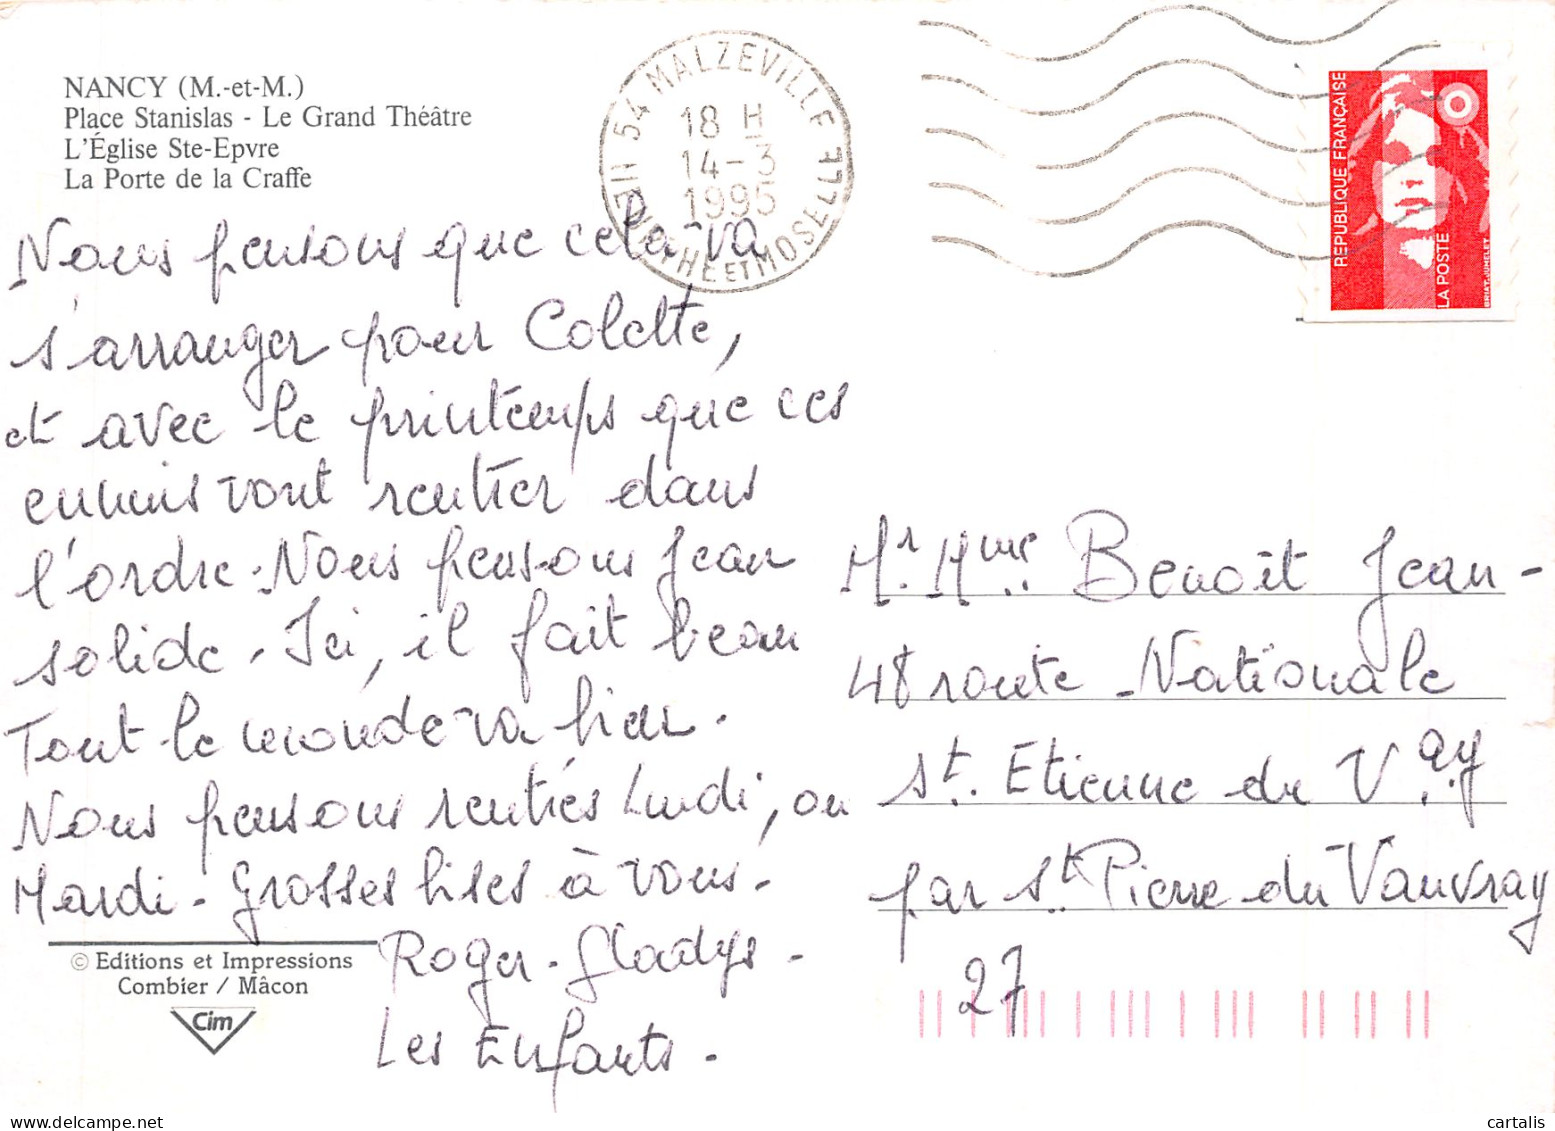 NANCY (M.-et-M.)
Place Stanislas - Le Grand Théâtre
L'Église Ste-Epvre
La Porte de la Craffe
54 MALZEVILLE
18 H
14-3
1995
MEURTHE ET MOSELLE
REPUBLIQUE FRANÇAISE
LA POSTE
BRIAT-JUMELET
Nous pensons que cela va
s'arranger pour Colette,
et avec le printemps que ces
ennuis vont rentrer dans
l'ordre. Nous pensons Jean
solide. Ici, il fait beau
Tout le monde va bien.
Nous pensons rentrés Lundi, ou
Mardi. Grosses bises à vous.
Roger. Gladys.
Les Enfants.
Mr. Mme. Benoît Jean-
48 route Nationale
St. Etienne du Vay
par St. Pierre du Vauvray
27
© Editions et Impressions
Combier / Mâcon
Cim
www.delcampe.net
cartalis